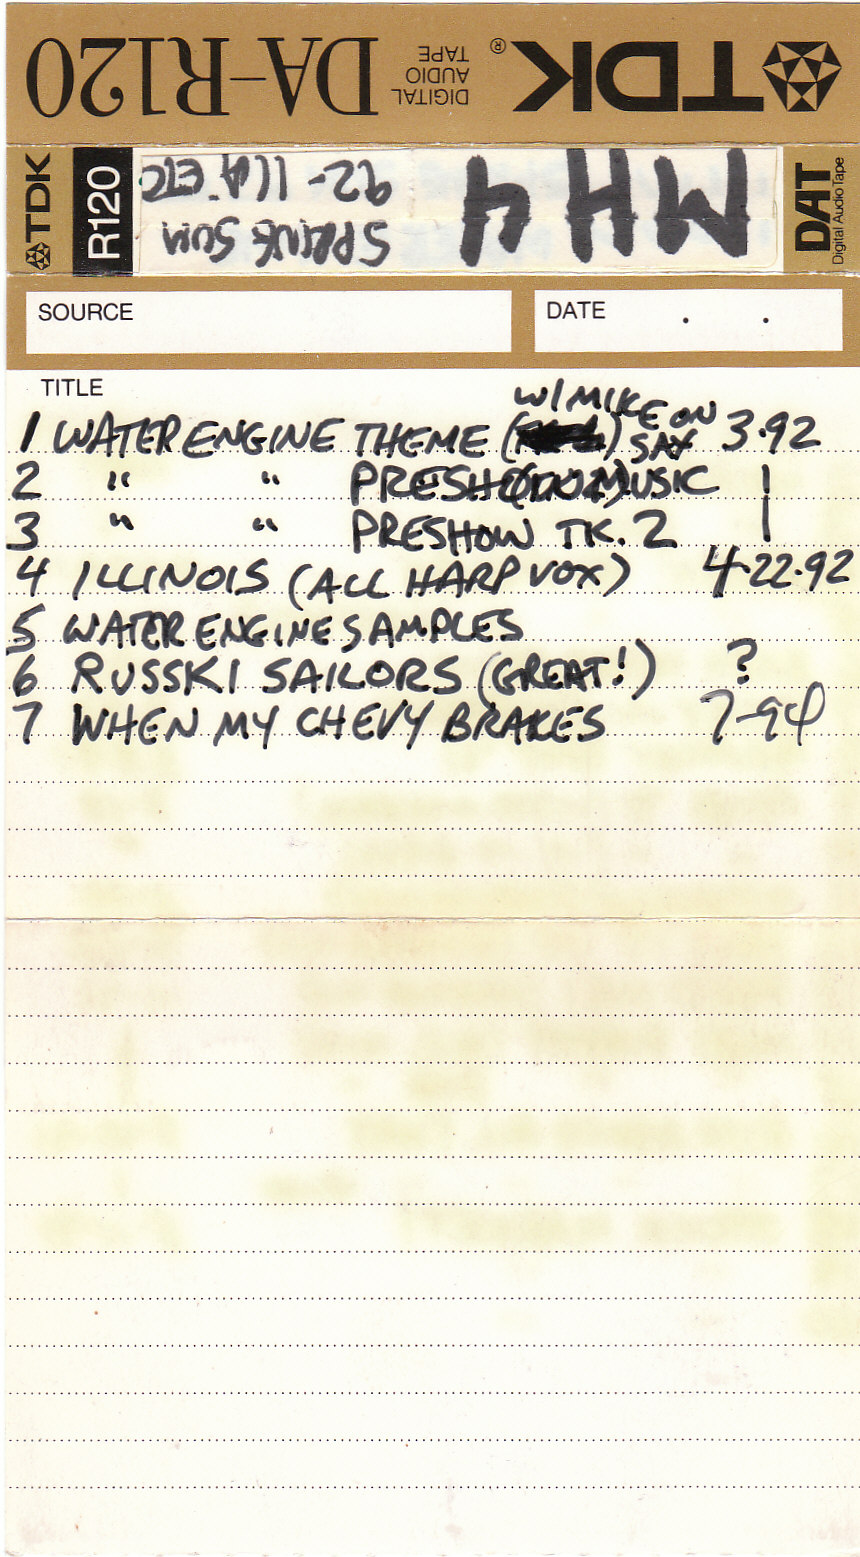 TDK®
DIGITAL
AUDIO
TAPE
DA-R120
TDK
R120
MH4
SPRING SUM
92- ILA ETC
DAT
Digital Audio Tape
SOURCE
DATE . .
TITLE
W/MIKE ON
1 WATER ENGINE THEME ( ) SAX 3.92
2 " " PRESHOW MUSIC |
3 " " PRESHOW TK. 2 |
4 ILLINOIS (ALL HARP VOX) 4.22.92
5 WATER ENGINE SAMPLES
6 RUSSKI SAILORS (GREAT!) ?
7 WHEN MY CHEVY BRAKES 7-94